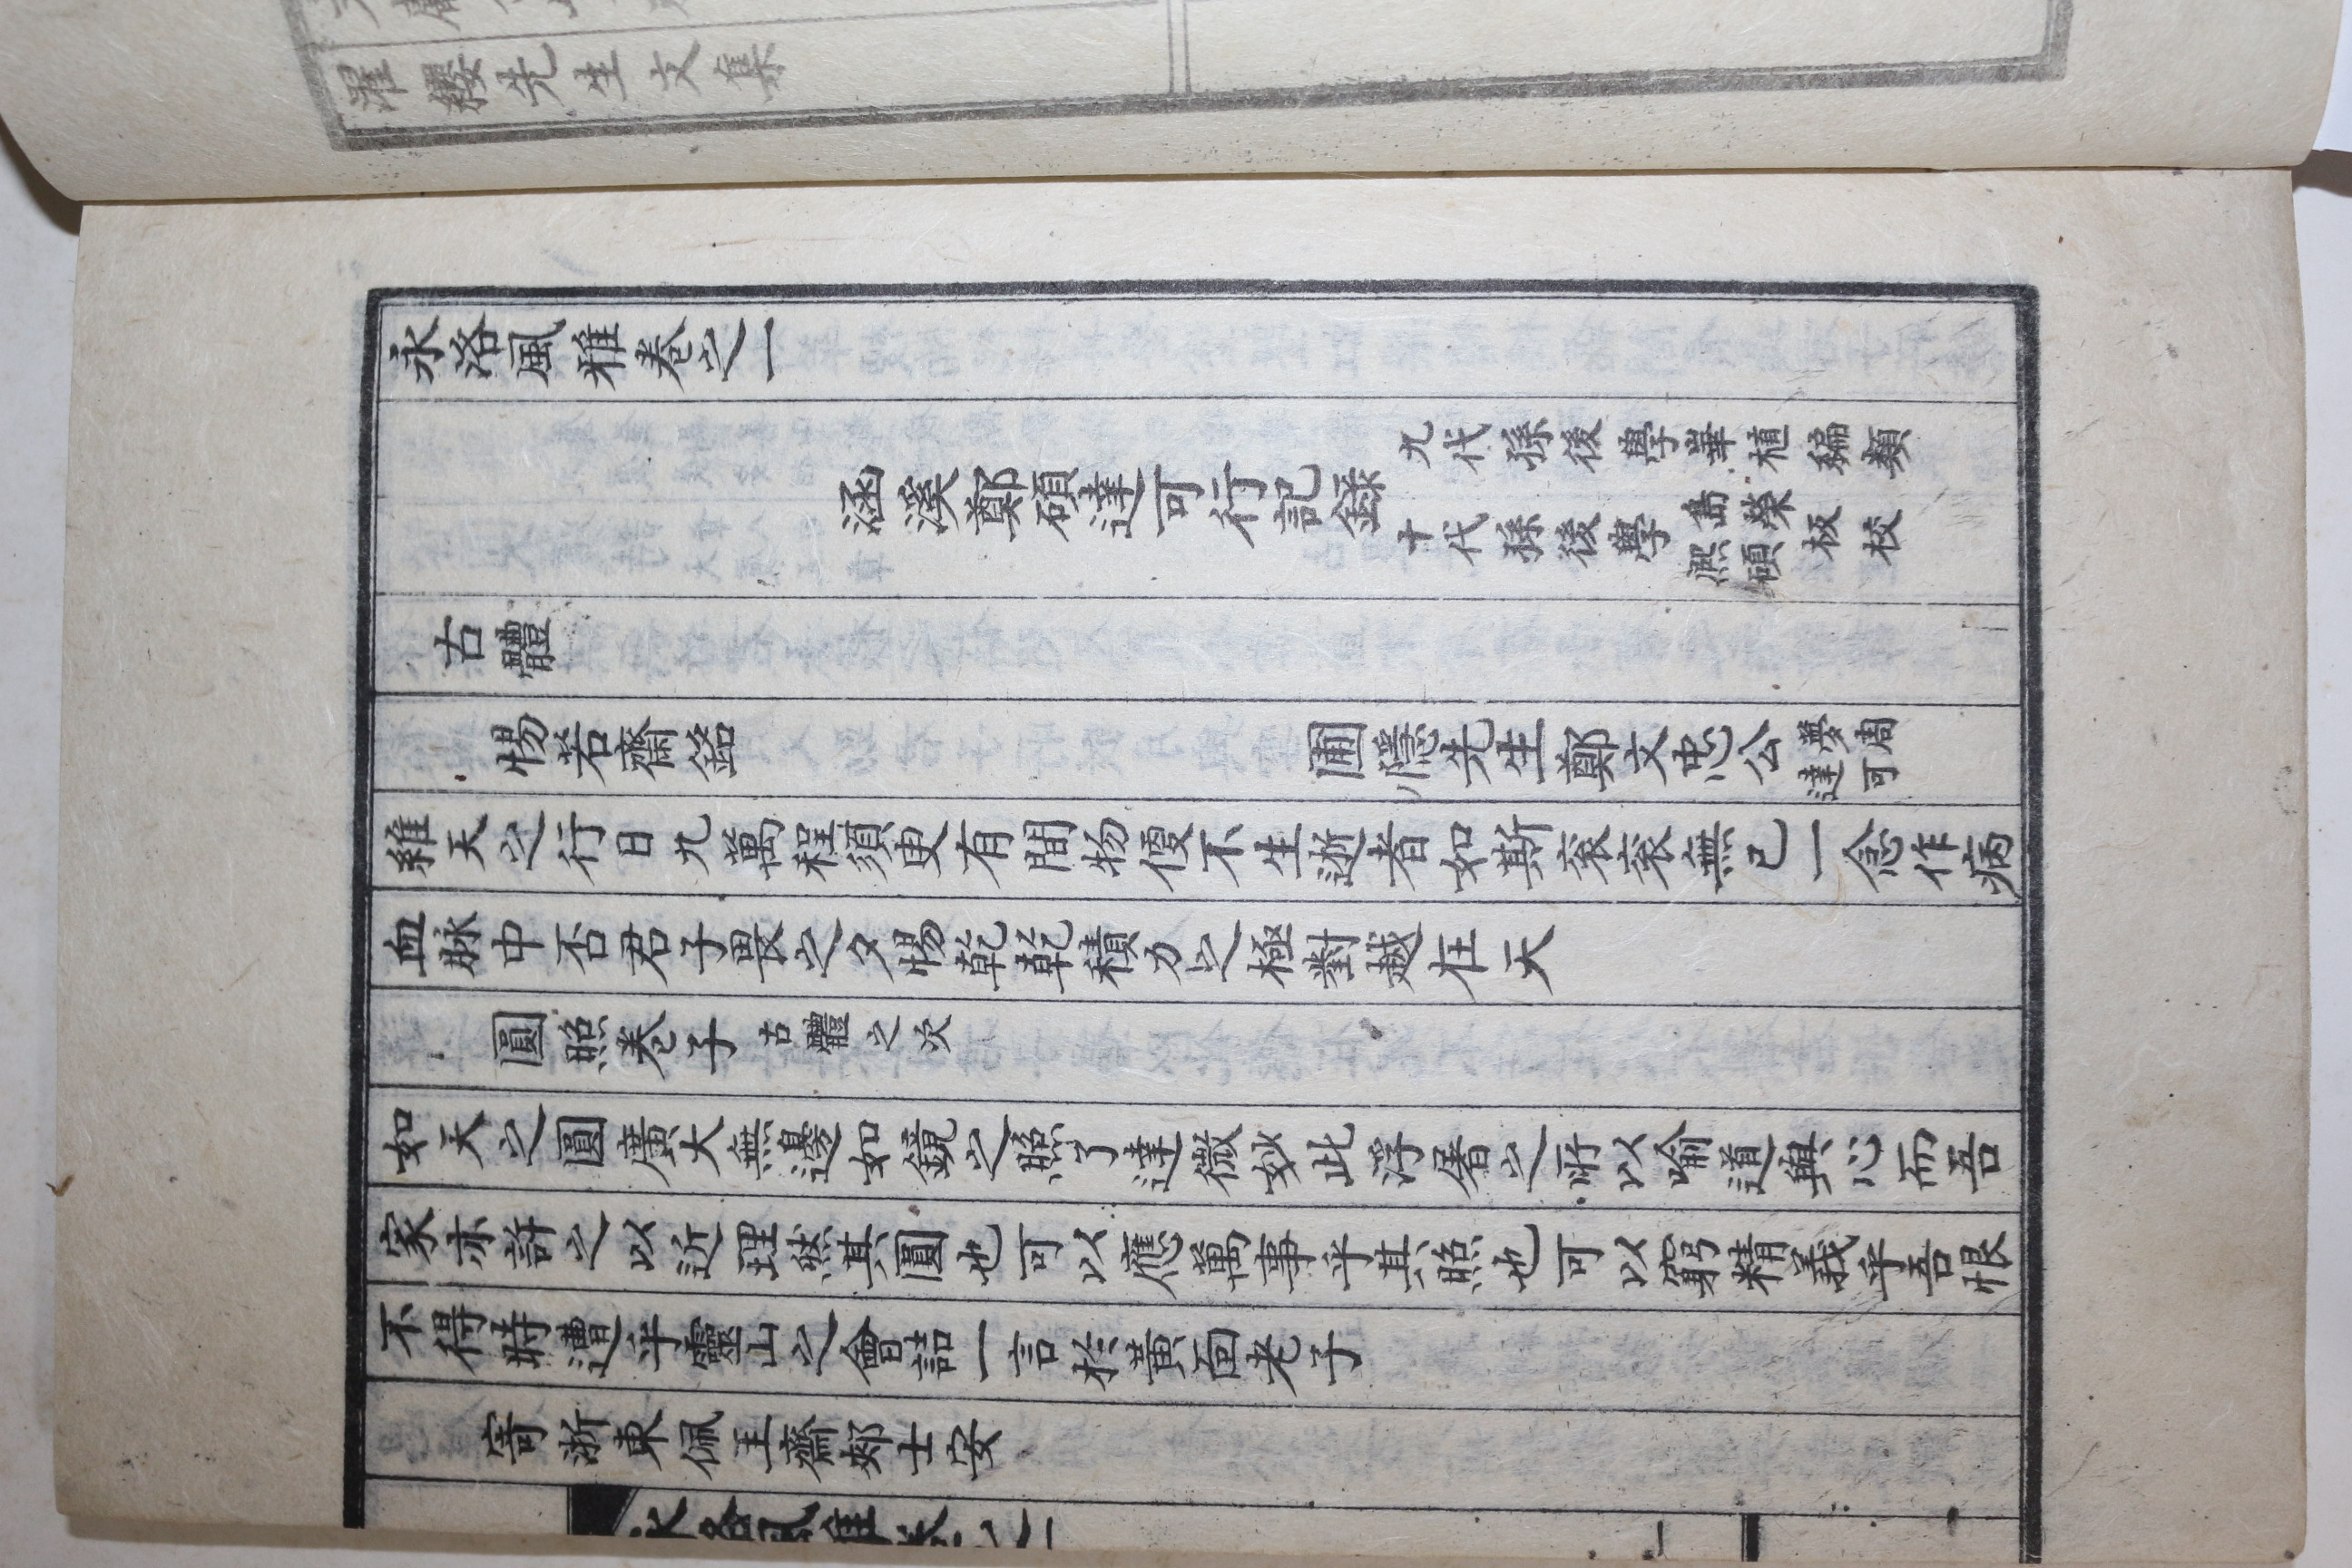 濯纓先生文集
永洛風雅卷之一
涵溪鄭碩達可行記錄
九代孫後學華植編類
十代孫後學
島榮
熙碩
板校
古體
惕若齋銘
圃隱先生鄭文忠公
夢周
達可
維天之行日九萬程須臾有間物便不生逝者如斯袞袞無已一念作病
血脉中否君子畏之夕惕乾乾積力之極對越在天
圓照卷子 古體之次
如天之圓廣大無邊如鏡之照了達微妙此浮屠之所以喩道與心而吾
家亦許之以近理然其圓也可以應萬事乎其照也可以窮精義乎吾恨
不得時遭乎靈山之會詰一言於黃面老子
寄浙東佩玉齋鄭士安
永洛風雅卷之一
一